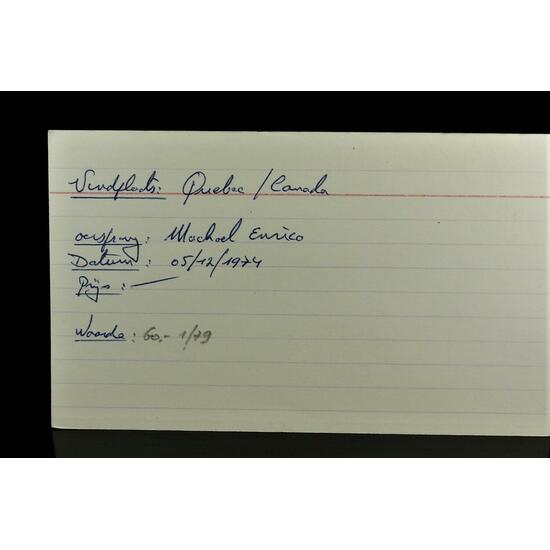 Vindplaats: Quebec / Canada
oorsprong: Machael Enrico
Datum: 05/12/1974
Prijs: —
Waarde: 60,- 1/79